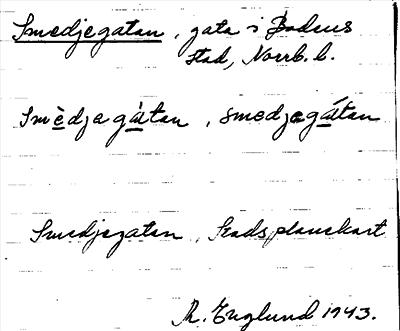 Smedjegatan, gata i Bodens
stad, Norrb. l.
Smèdjagátan, smedjegátan
Smedjegatan, Stadsplanekart
R. Englund 1943.